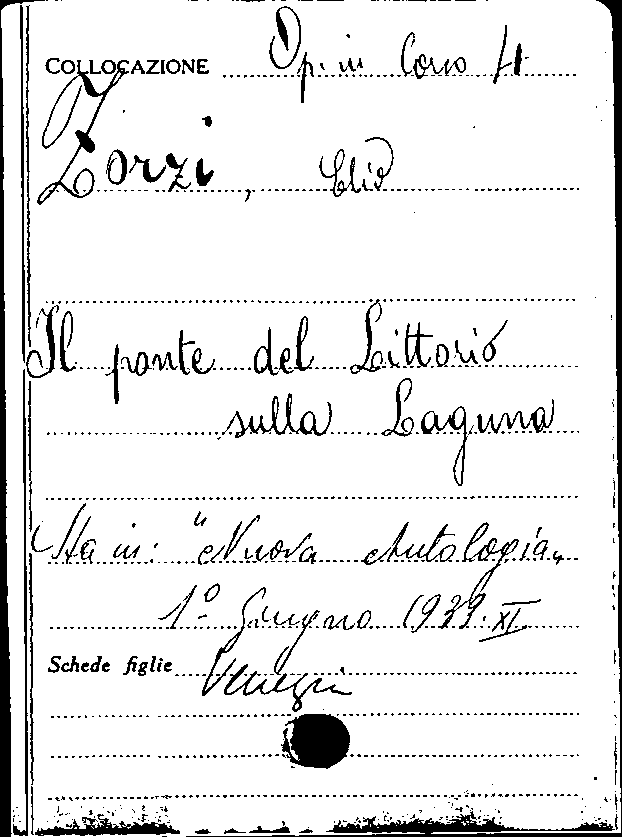 COLLOCAZIONE Op. in Corso 4
Zorzi, Elio
Il ponte del Littorio
sulla Laguna
Sta in: "Nuova Antologia"
1º Giugno 1933. XI
Schede figlie Venezia